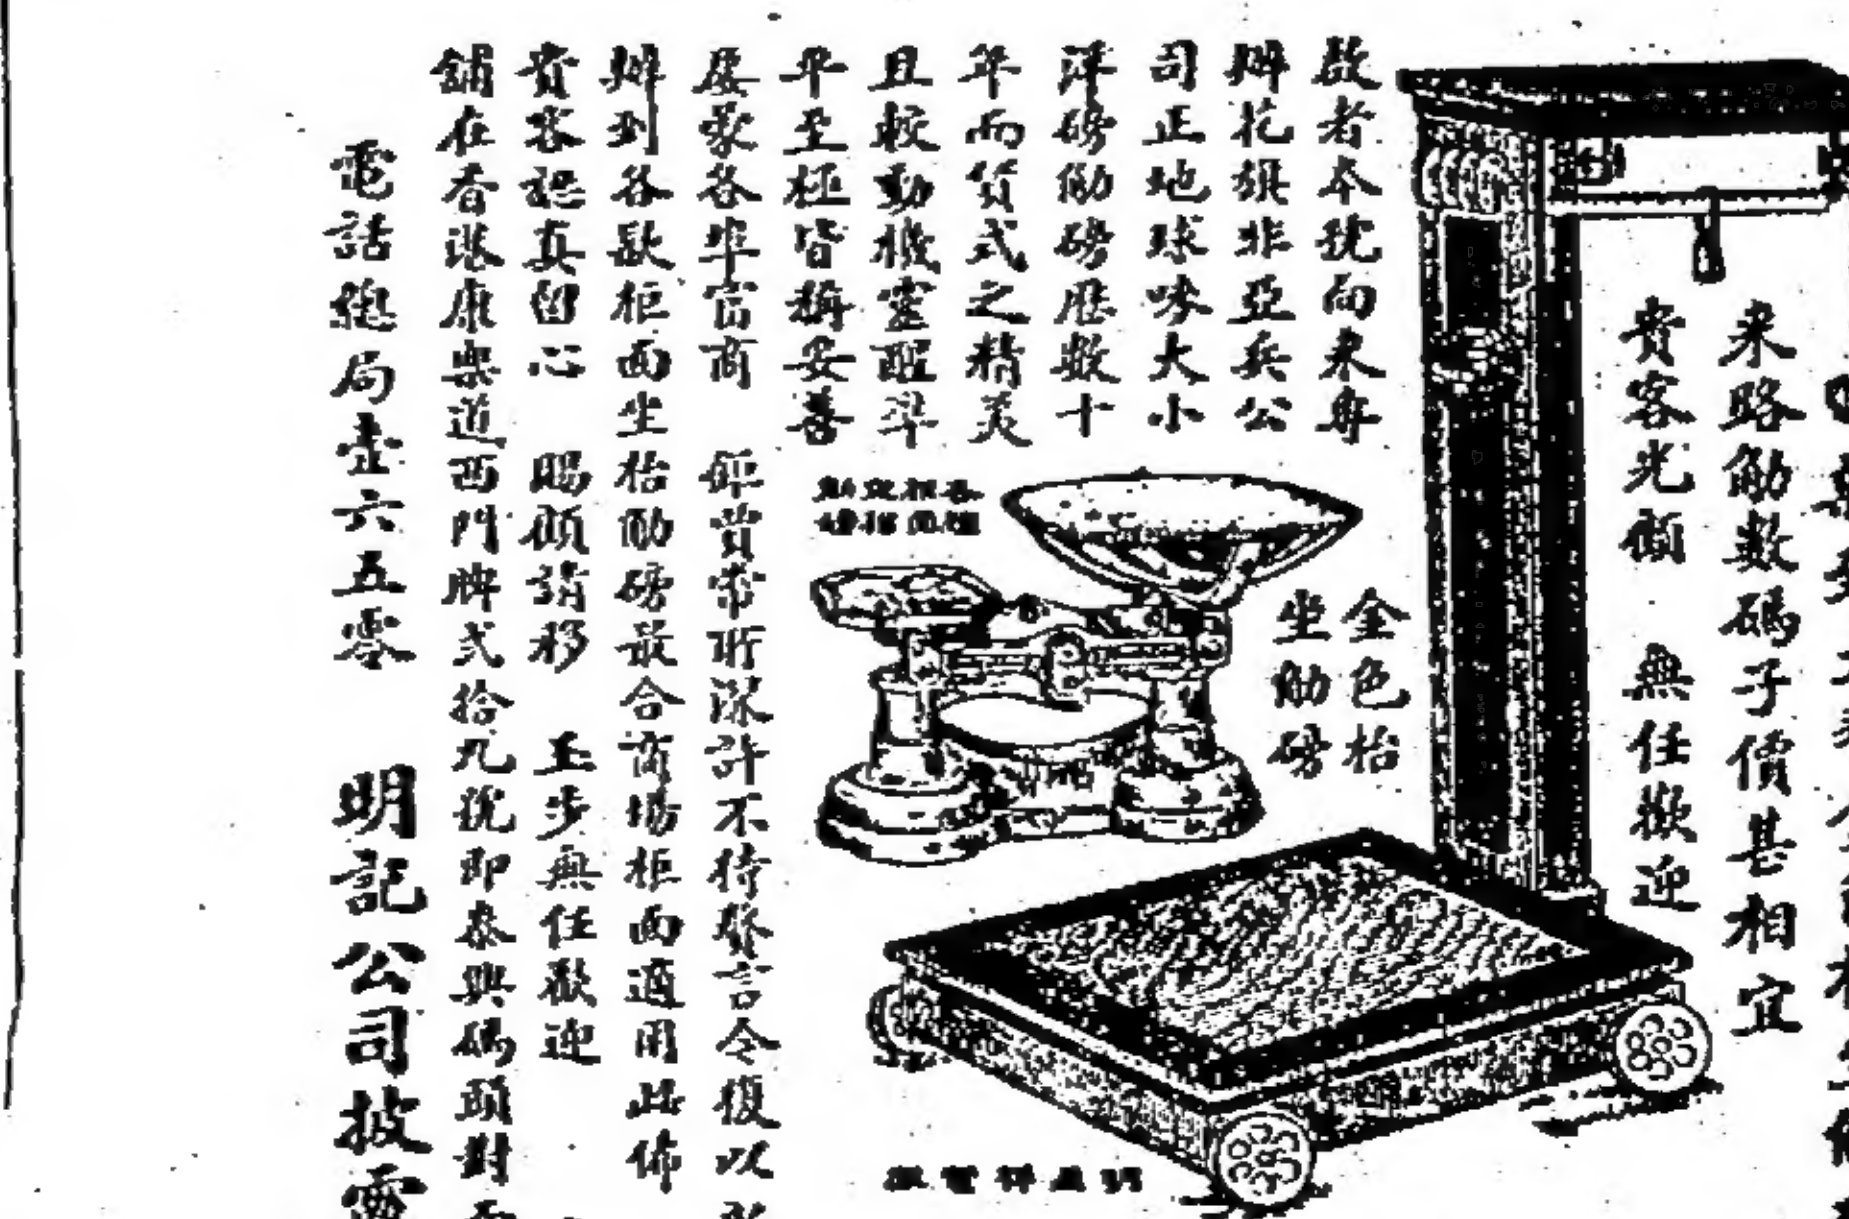 來路觔數碼子價甚相宜
貴客光顧 無任歡迎
啟者本號向來專
辦花旗非亞兵公
司正地球嘜大小
洋磅觔磅歷數十
年而貨式之精美
且較動機靈醒準
平至極皆稱妥善
屢蒙各埠官商 鉅賈常所深許不待贅言今復以
辦到各款柜面坐枱觔磅最合商場柜面適用此佈
貴客認真留心 賜顧請移 玉步無任歡迎
舖在香港康樂道西門牌弍拾九號即泰興碼頭對
電話總局壹六五零 明記公司披露
金色枱
坐觔磅